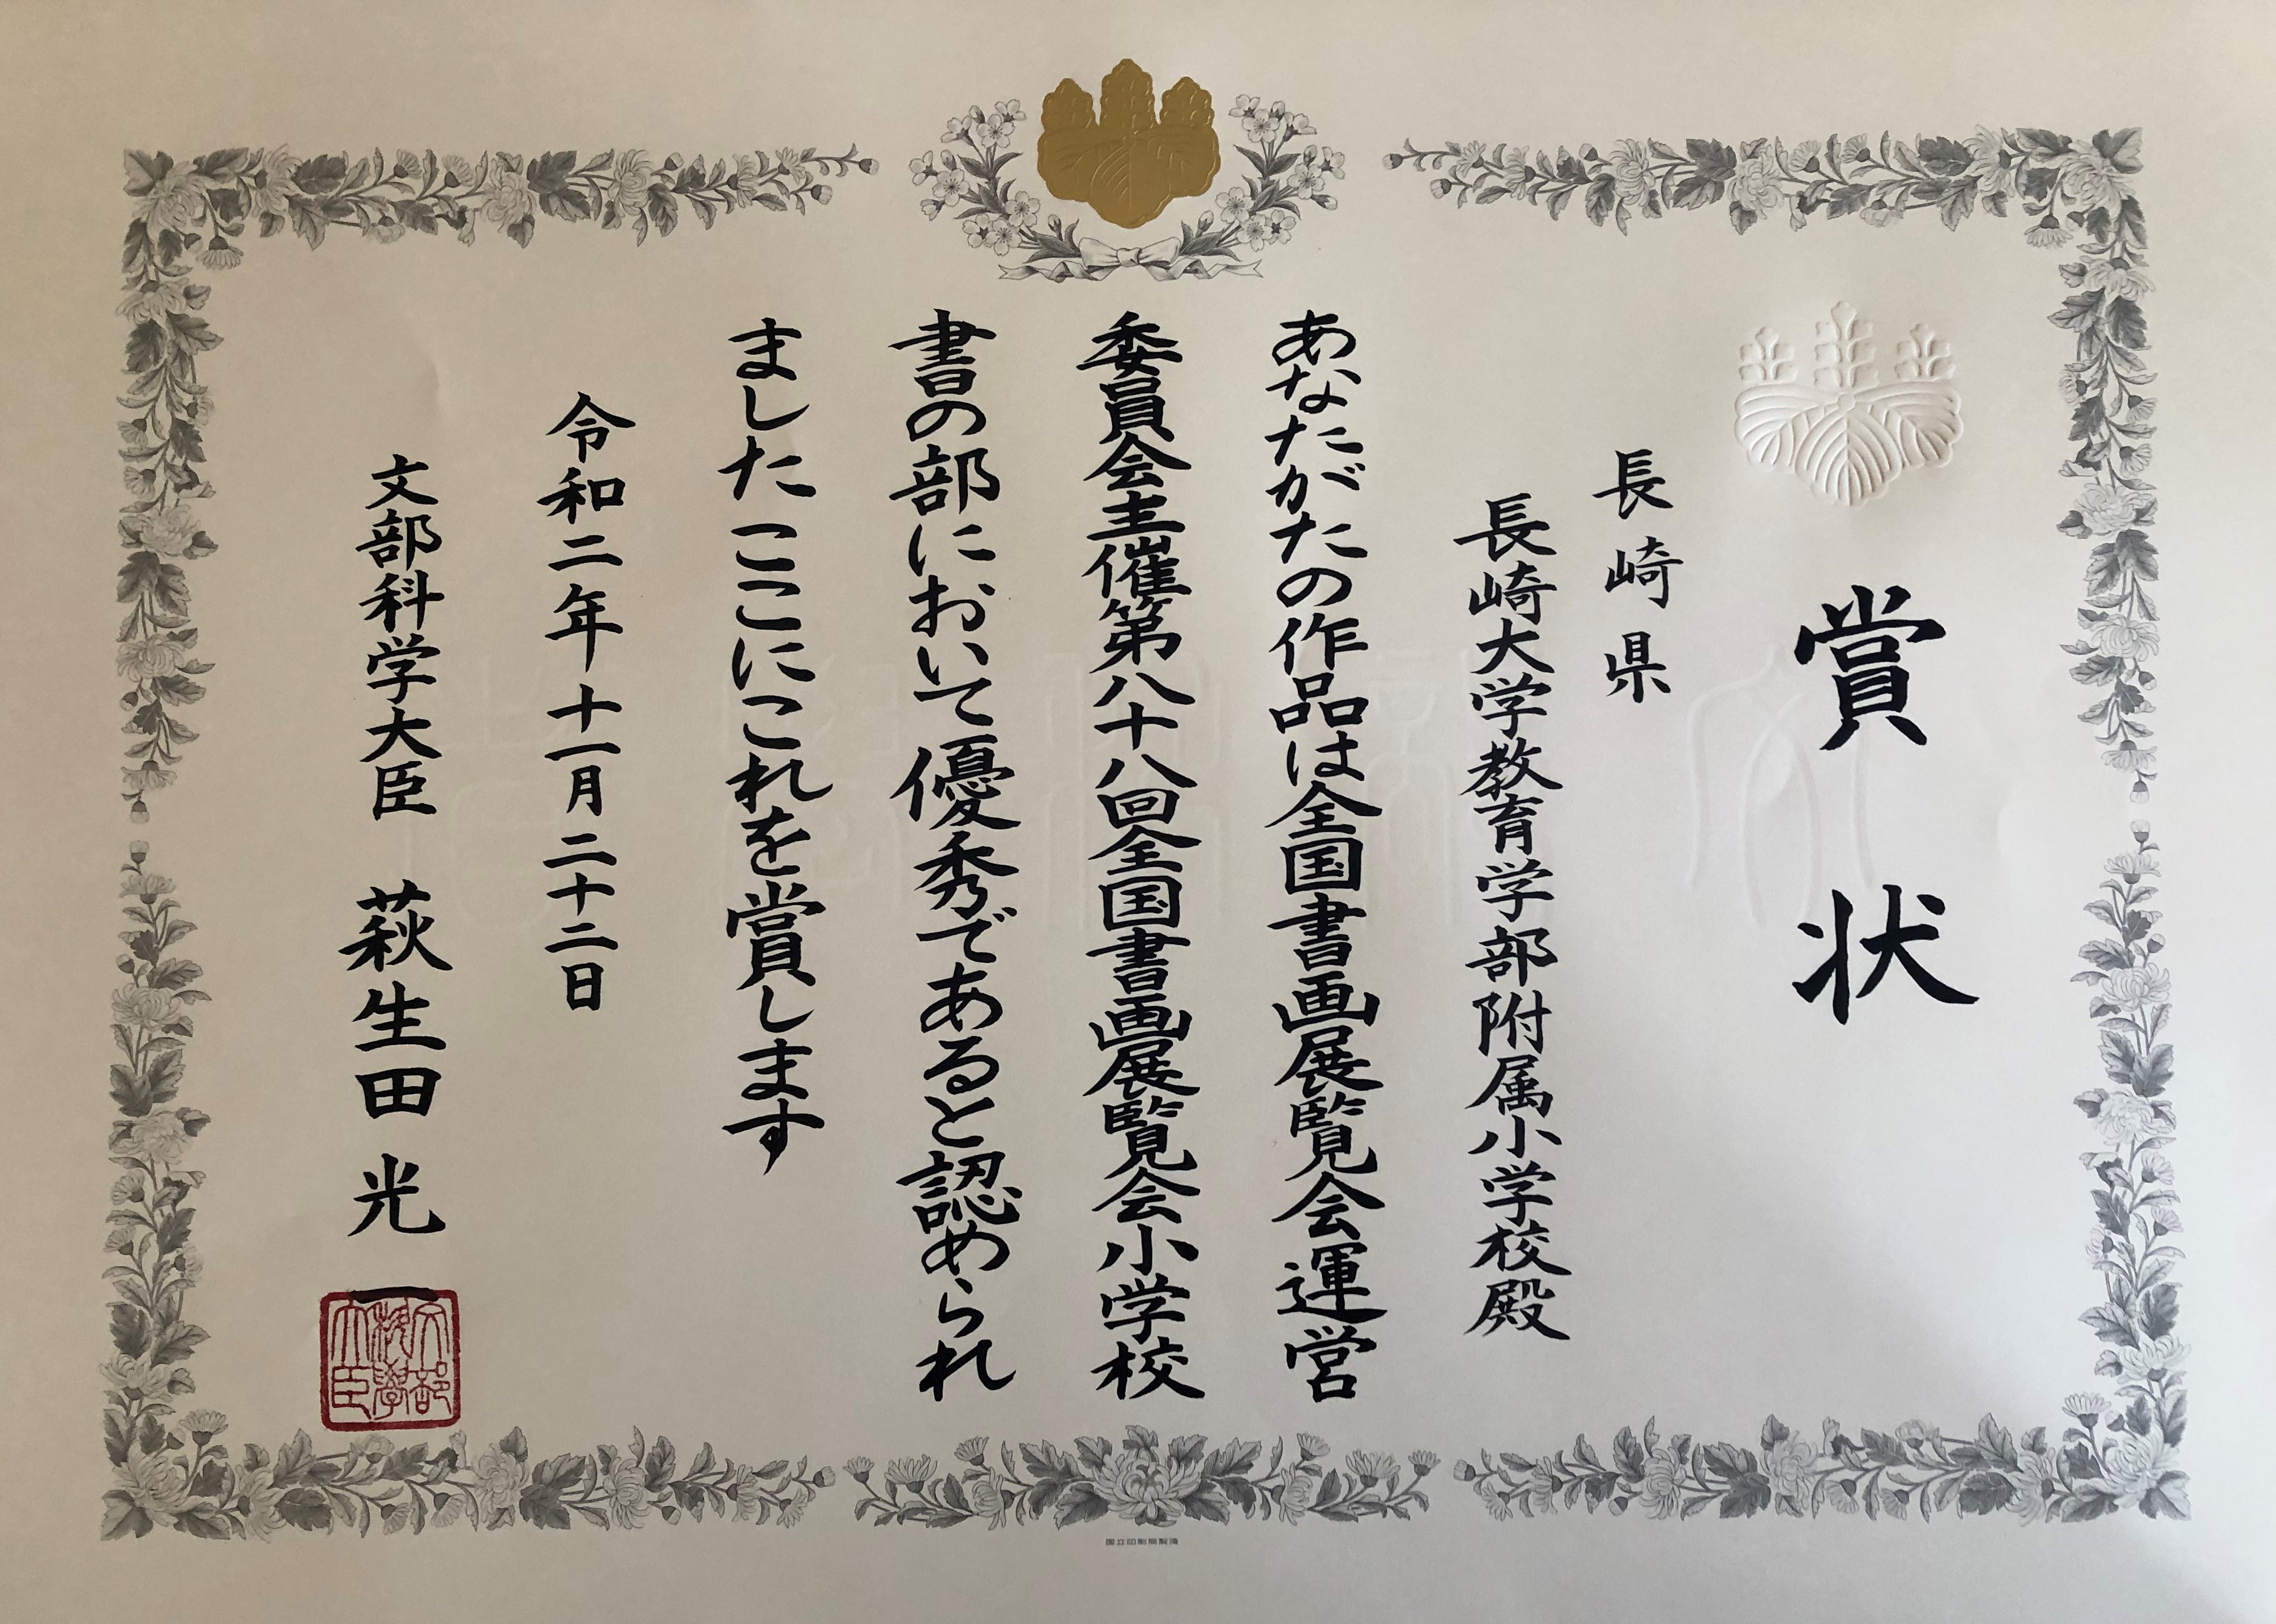 賞状
長崎県
長崎大学教育学部附属小学校殿
あなたがたの作品は全国書画展覧会運営
委員会主催第八十八回全国書画展覧会小学校
書の部において優秀であると認められ
ましたここにこれを賞します
令和二年十一月二十二日
文部科学大臣 萩生田光一
文部科學大臣
国立印刷局製造